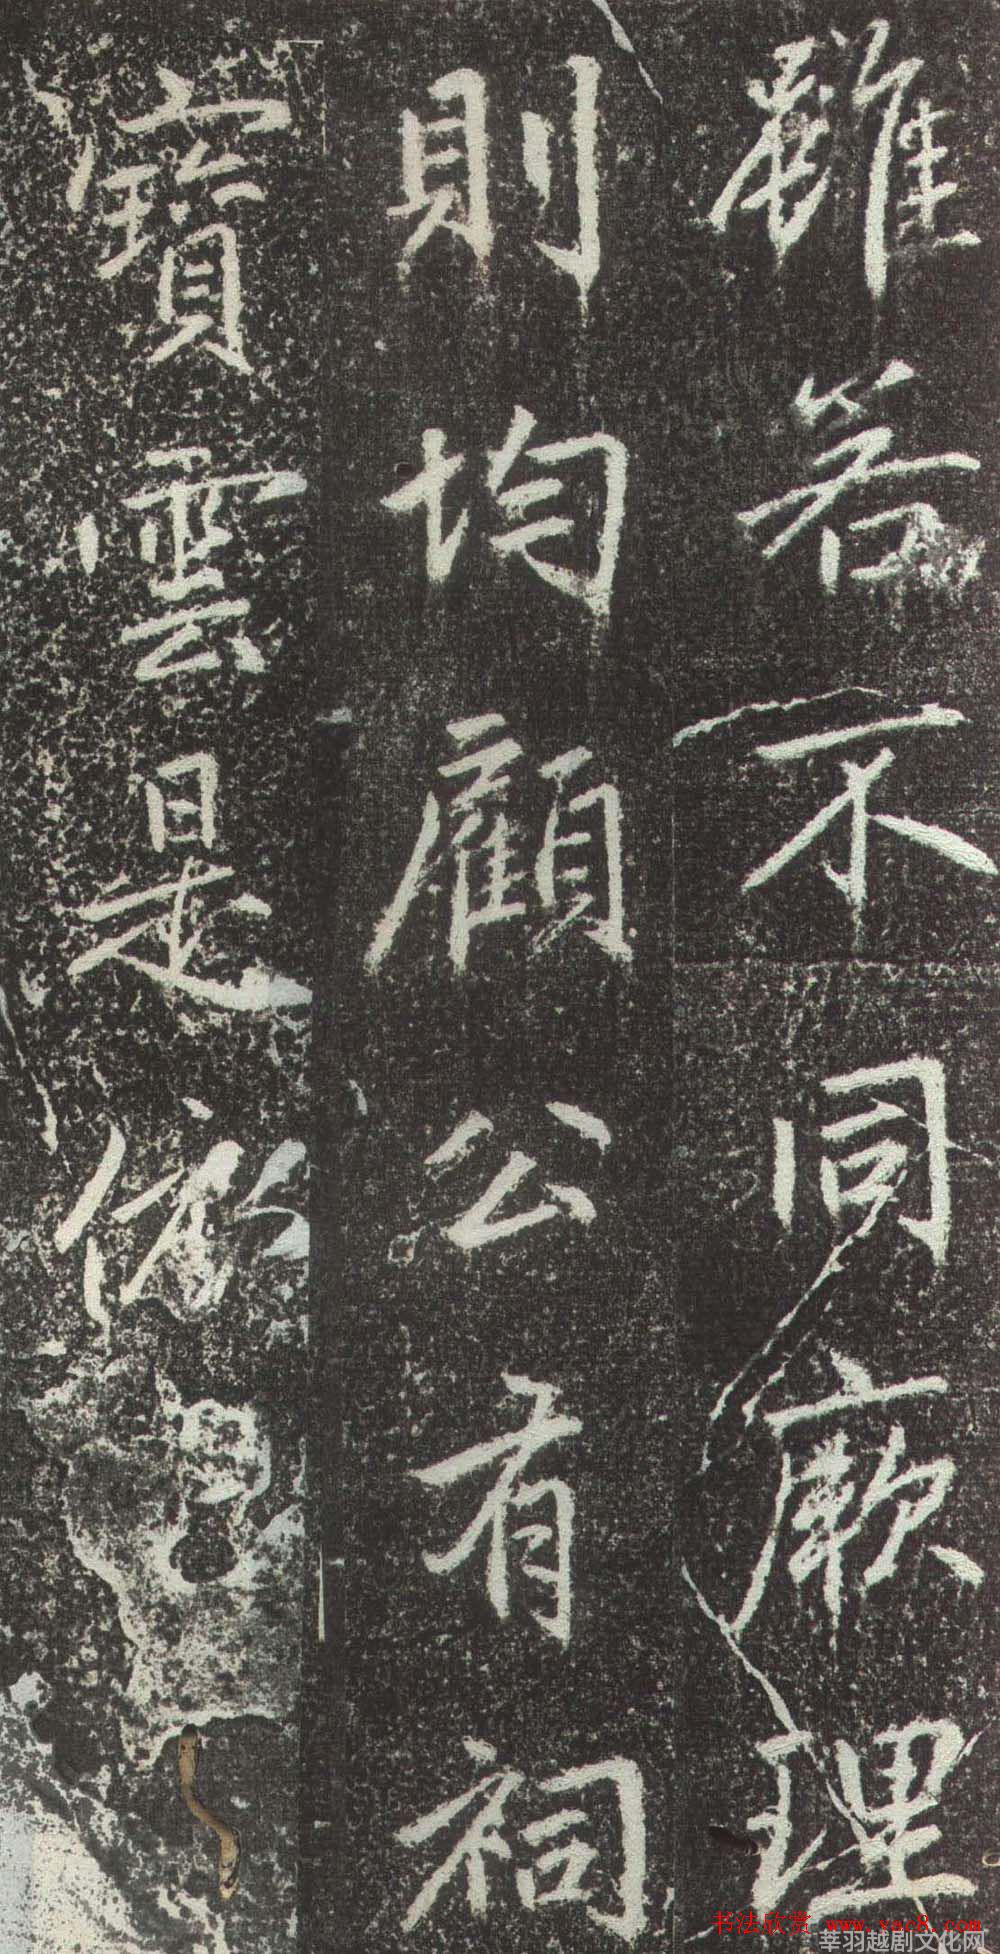 雖若不同厥理
則均顧公有祠
寶雲是依
书法欣赏 www.yac8.com
莘羽越剧文化网